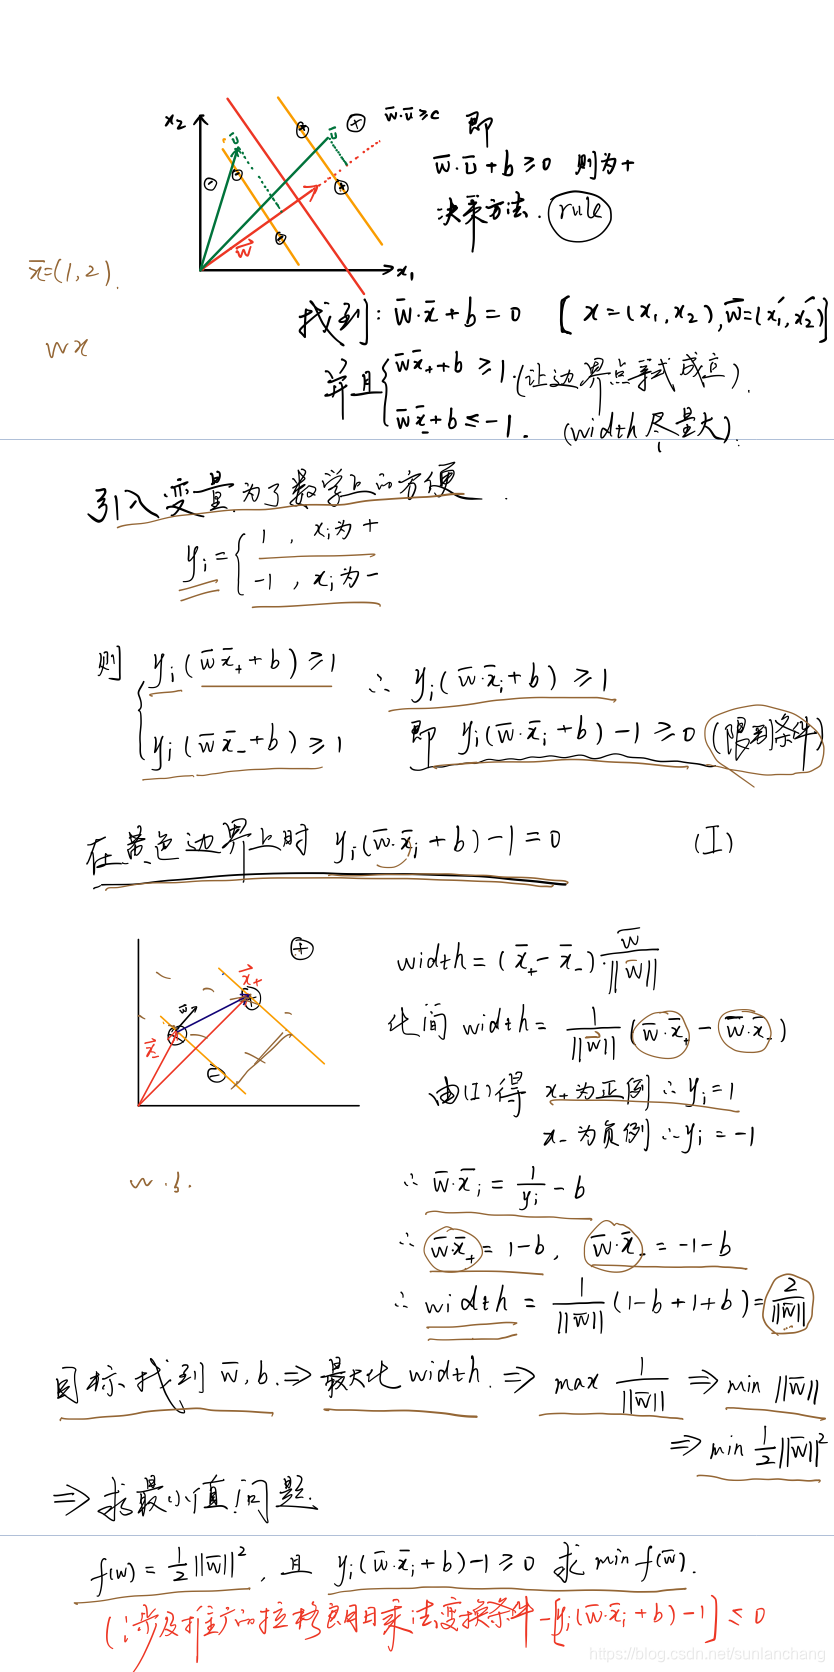 x₂
w̄·ū ≥ c
即
w̄·ū + b ≥ 0 则为+
决策方法. rule
x₁
w̄
x̄=(1,2).
wx
找到: w̄·x̄ + b = 0 [x=(x₁,x₂), w̄=(x₁′,x₂′)]
并且{ w̄x̄₊+b ≥ 1. (让边界点等式成立).
w̄x̄₋+b ≤ -1. (width尽量大).
引入变量为了数学上的方便.
yᵢ = { 1, xᵢ为+
-1, xᵢ为-
则 { yᵢ(w̄x̄₊+b) ≥ 1 ∴ yᵢ(w̄·x̄ᵢ+b) ≥ 1
yᵢ(w̄x̄₋+b) ≥ 1 即 yᵢ(w̄·x̄ᵢ+b)-1 ≥ 0 (限制条件)
在黄色边界上时 yᵢ(w̄·x̄ᵢ+b)-1=0 (I)
width = (x̄₊ - x̄₋)·w̄/||w̄||
化简 width = 1/||w̄|| (w̄·x̄₊ - w̄·x̄₋)
由(I)得 x₊为正例 ∴ yᵢ=1
x₋为负例 ∴ yᵢ=-1
w.b.
∴ w̄·x̄ᵢ = 1/yᵢ - b
∴ w̄·x̄₊ = 1-b, w̄·x̄₋ = -1-b
∴ width = 1/||w̄|| (1-b+1+b) = 2/||w̄||
目标找到 w̄,b. ⇒ 最大化 width. ⇒ max 1/||w̄|| ⇒ min ||w̄||
⇒ min ½||w̄||²
⇒ 求最小值问题.
f(w) = ½||w̄||², 且 yᵢ(w̄·x̄ᵢ+b)-1 ≥ 0 求 min f(w̄).
(∵涉及推广的拉格朗日乘法变换条件 -[yᵢ(w̄·x̄ᵢ+b)-1] ≤ 0
https://blog.csdn.net/sunlanchang